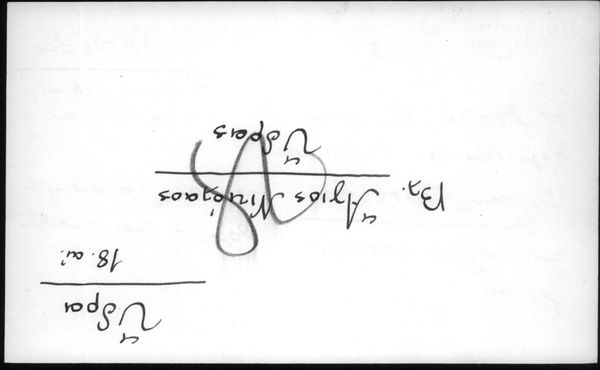 Ὕδρα
18. αἰ.
Βλ. Ἅγιος Νικόλαος
Ὕδρας